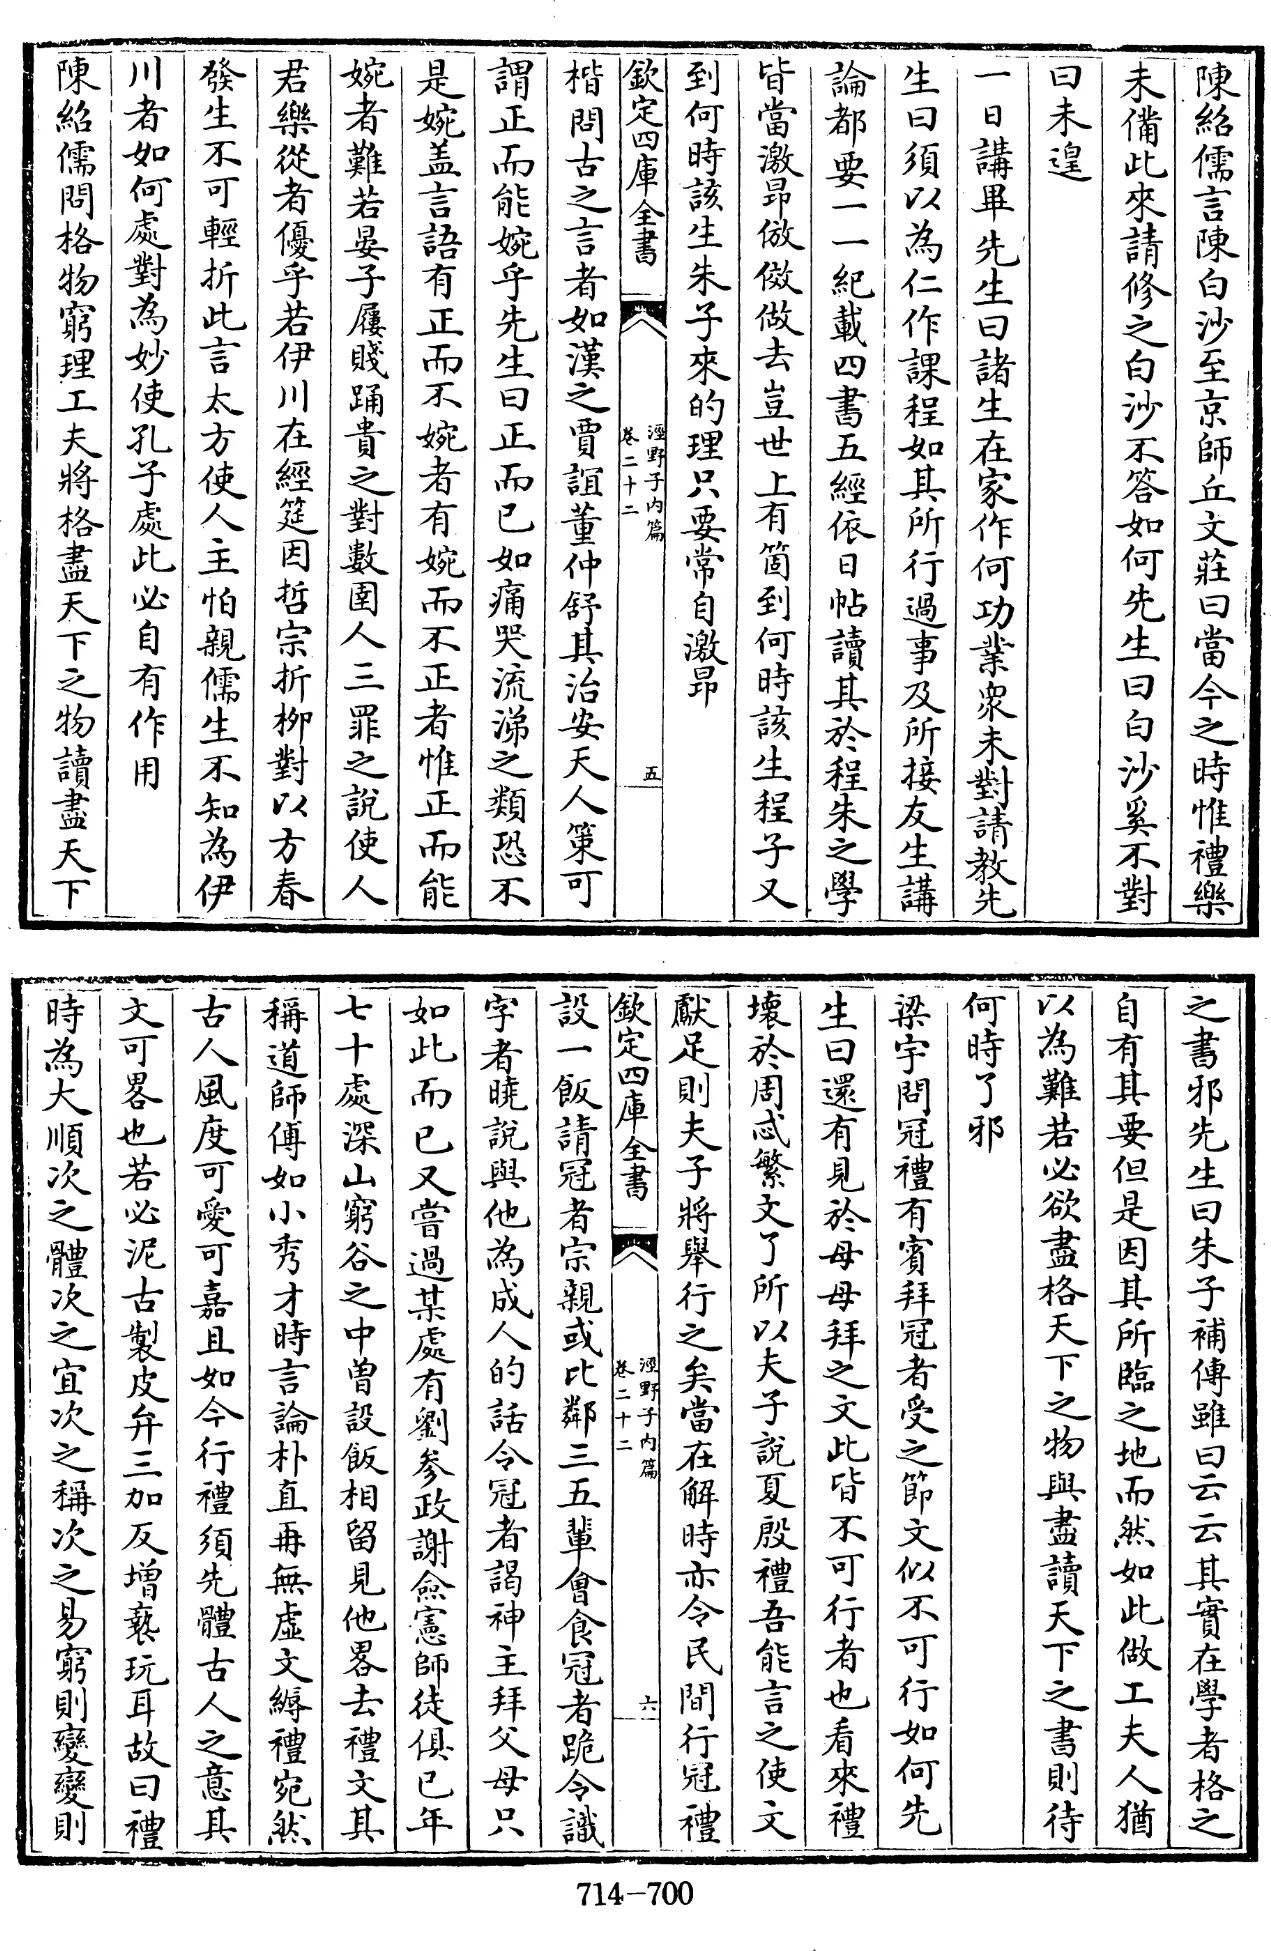 陳紹儒言陳白沙至京師丘文莊曰當今之時惟禮樂
未備此來請修之白沙不答如何先生曰白沙奚不對
曰未遑
一日講畢先生曰諸生在家作何功業衆未對請教先
生曰須以為仁作課程如其所行過事及所接友生講
論都要一一紀載四書五經依日帖讀其於程朱之學
皆當激昂倣傚做去豈世上有箇到何時該生程子又
到何時該生朱子來的理只要常自激昂
欽定四庫全書
涇野子内篇
卷二十二
五
楷問古之言者如漢之賈誼董仲舒其治安天人策可
謂正而能婉乎先生曰正而已如痛哭流涕之類恐不
是婉盖言語有正而不婉者有婉而不正者惟正而能
婉者難若晏子屨賤踊貴之對數圉人三罪之說使人
君樂從者優乎若伊川在經筵因哲宗折柳對以方春
發生不可輕折此言太方使人主怕親儒生不知為伊
川者如何處對為妙使孔子處此必自有作用
陳紹儒問格物窮理工夫將格盡天下之物讀盡天下
之書邪先生曰朱子補傳雖曰云云其實在學者格之
自有其要但是因其所臨之地而然如此做工夫人猶
以為難若必欲盡格天下之物與盡讀天下之書則待
何時了邪
梁宇問冠禮有賓拜冠者受之節文似不可行如何先
生曰還有見於母母拜之文此皆不可行者也看來禮
壞於周忒繁文了所以夫子說夏殷禮吾能言之使文
獻足則夫子將舉行之矣當在解時亦令民間行冠禮
欽定四庫全書
涇野子内篇
卷二十二
六
設一飯請冠者宗親或比鄰三五輩會食冠者跪令識
字者曉說與他為成人的話令冠者謁神主拜父母只
如此而已又嘗過某處有劉參政謝僉憲師徒俱已年
七十處深山窮谷之中曽設飯相留見他畧去禮文其
稱道師傅如小秀才時言論朴直再無虛文縟禮宛然
古人風度可愛可嘉且如今行禮須先體古人之意其
文可畧也若必泥古製皮弁三加反增褻玩耳故曰禮
時為大順次之體次之宜次之稱次之易窮則變變則
714-700